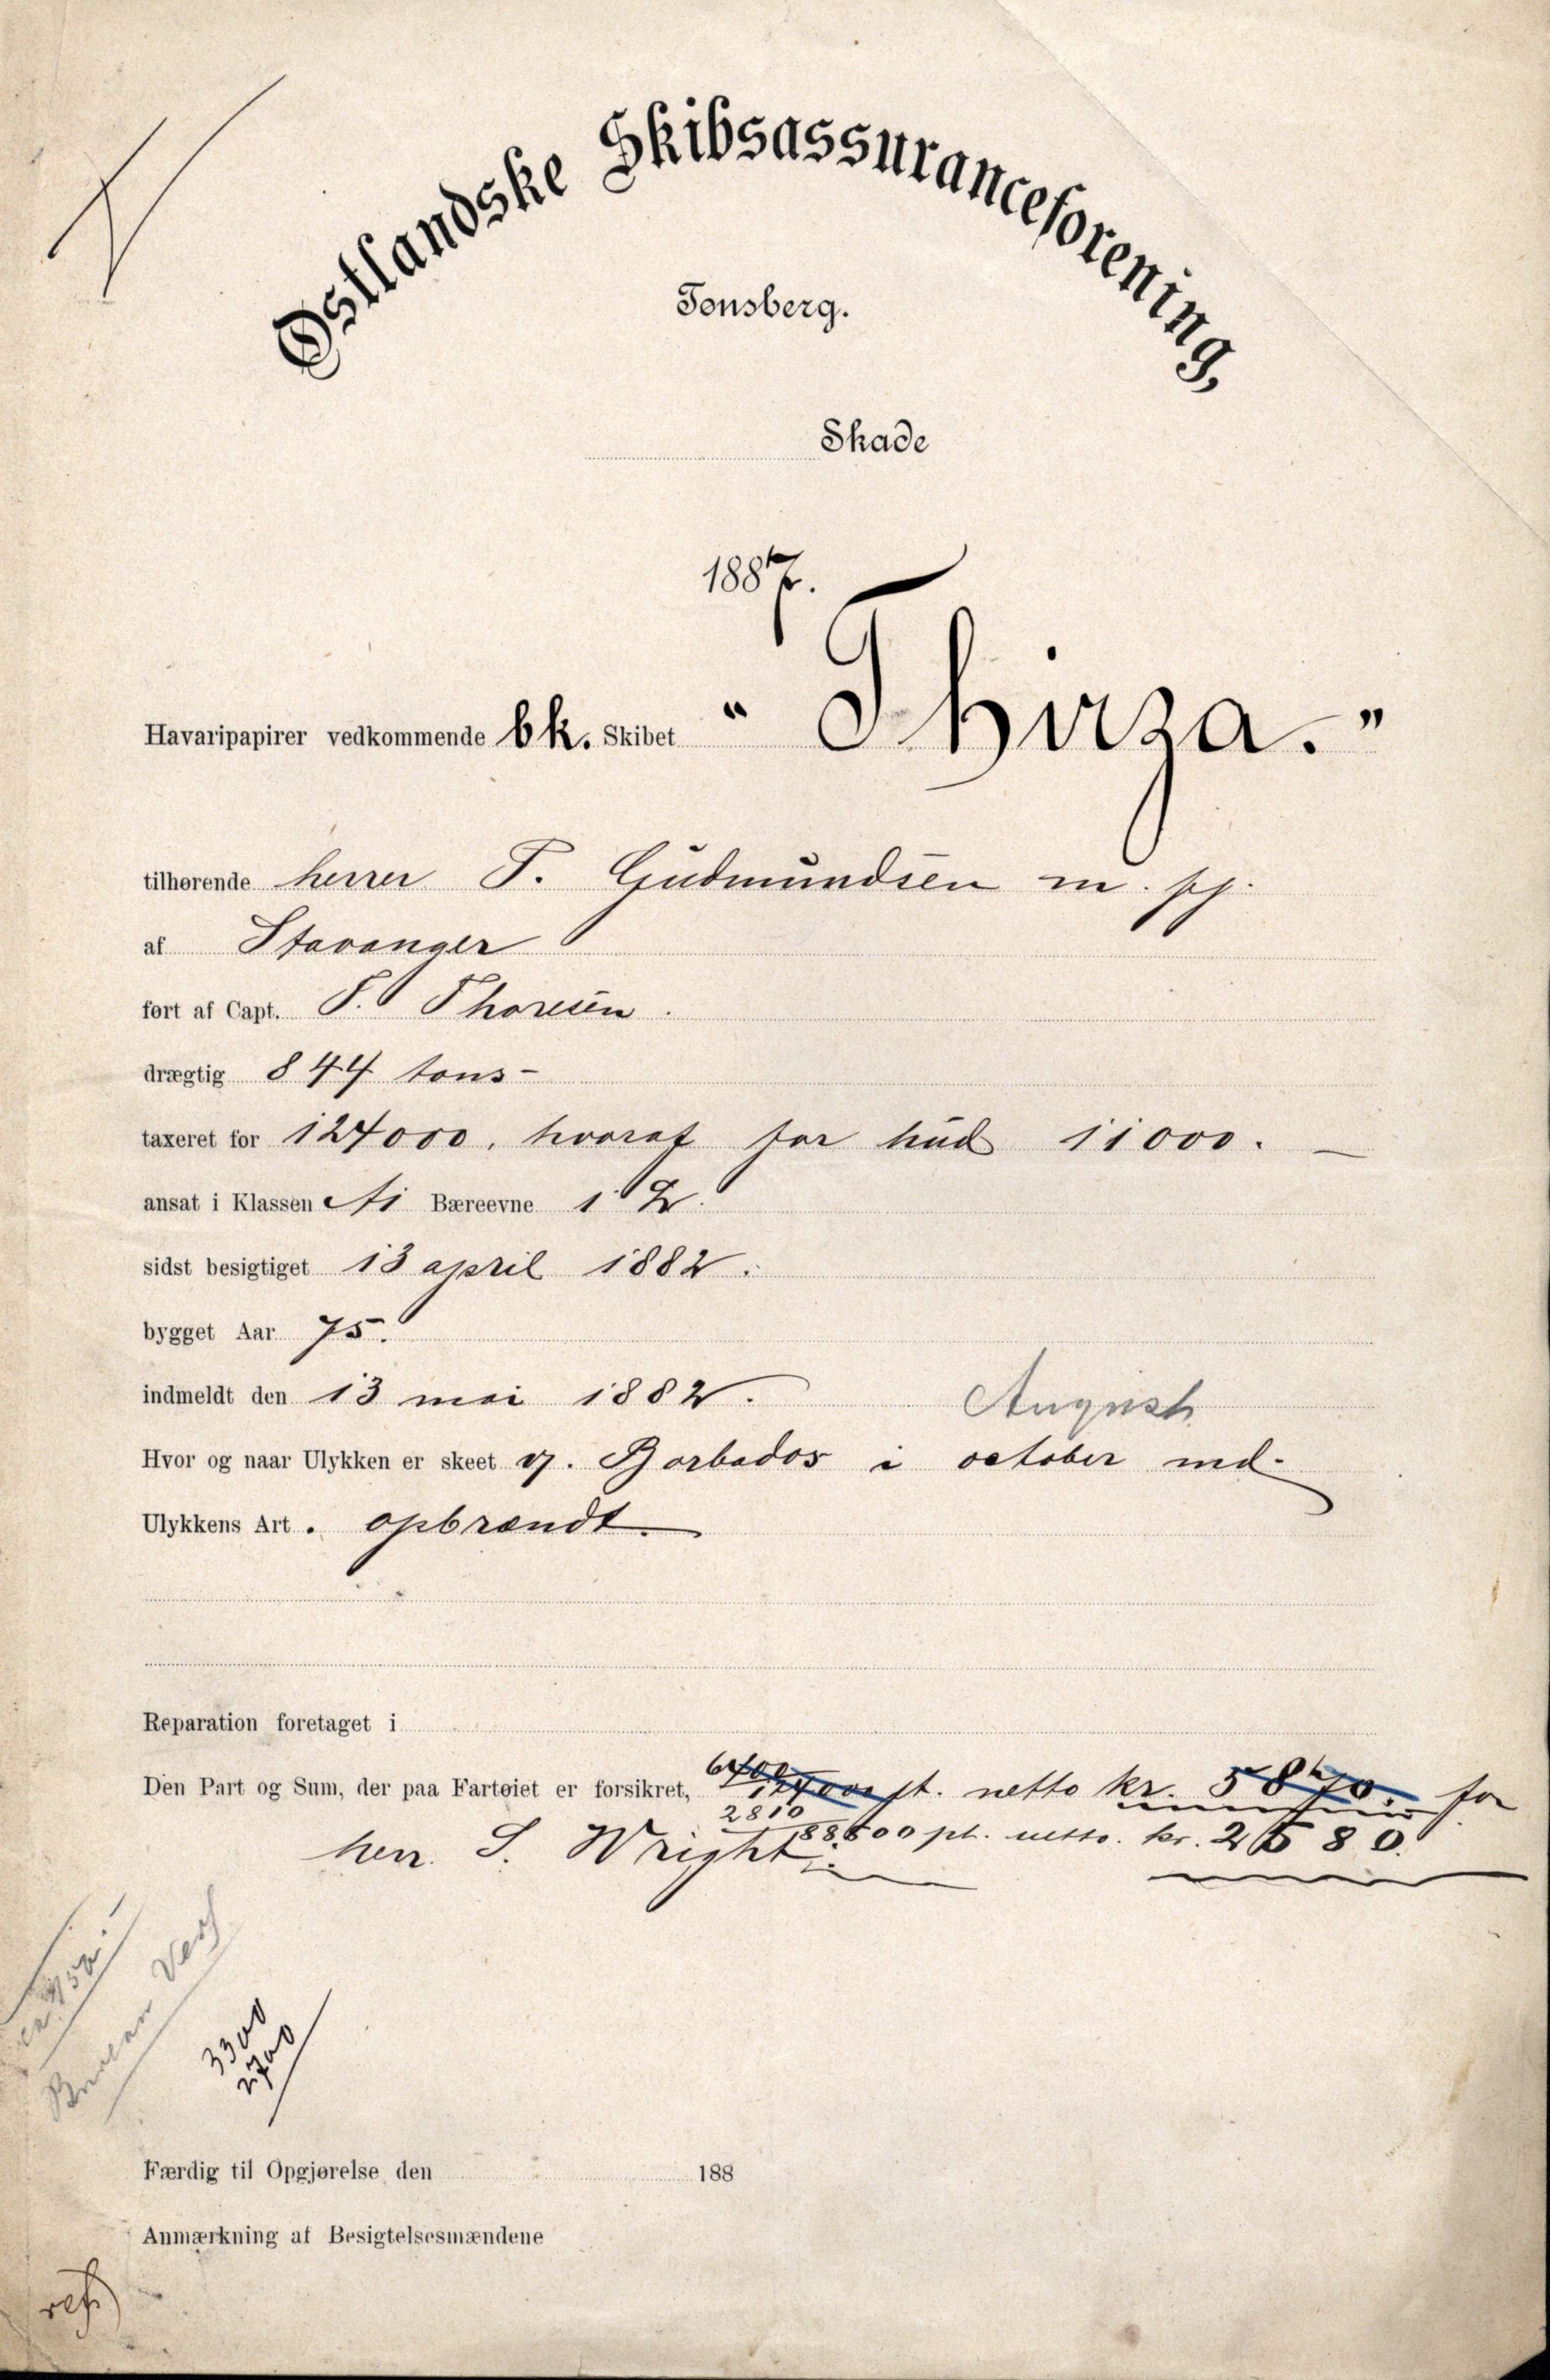 Østlandske Skibsassuranceforening,
Tønsberg.
Skade
1887.
Havaripapirer vedkommende bk. Skibet "Thirza."
tilhørende herrer T. Gudmundsen m. fl.
af Stavanger
ført af Capt. T. Thoresen.
drægtig 844 tons -
taxeret for 124000, hvoraf for hud 11000. -
ansat i Klassen A1 Bæreevne 1 2.
sidst besigtiget 13 april 1882.
bygget Aar 75.
indmeldt den 13 mai 1882.
August
Hvor og naar Ulykken er skeet v. Barbados i october md.
Ulykkens Art. opbrændt.
Reparation foretaget i
Den Part og Sum, der paa Fartøiet er forsikret, 6400/124000 pt. netto kr. 5870. for
2810/88500 pt. netto. kr. 2580.
herr. S. Wright.
Bureau Verf
3300
2700
Færdig til Opgjørelse den 188
Anmærkning af Besigtelsesmændene